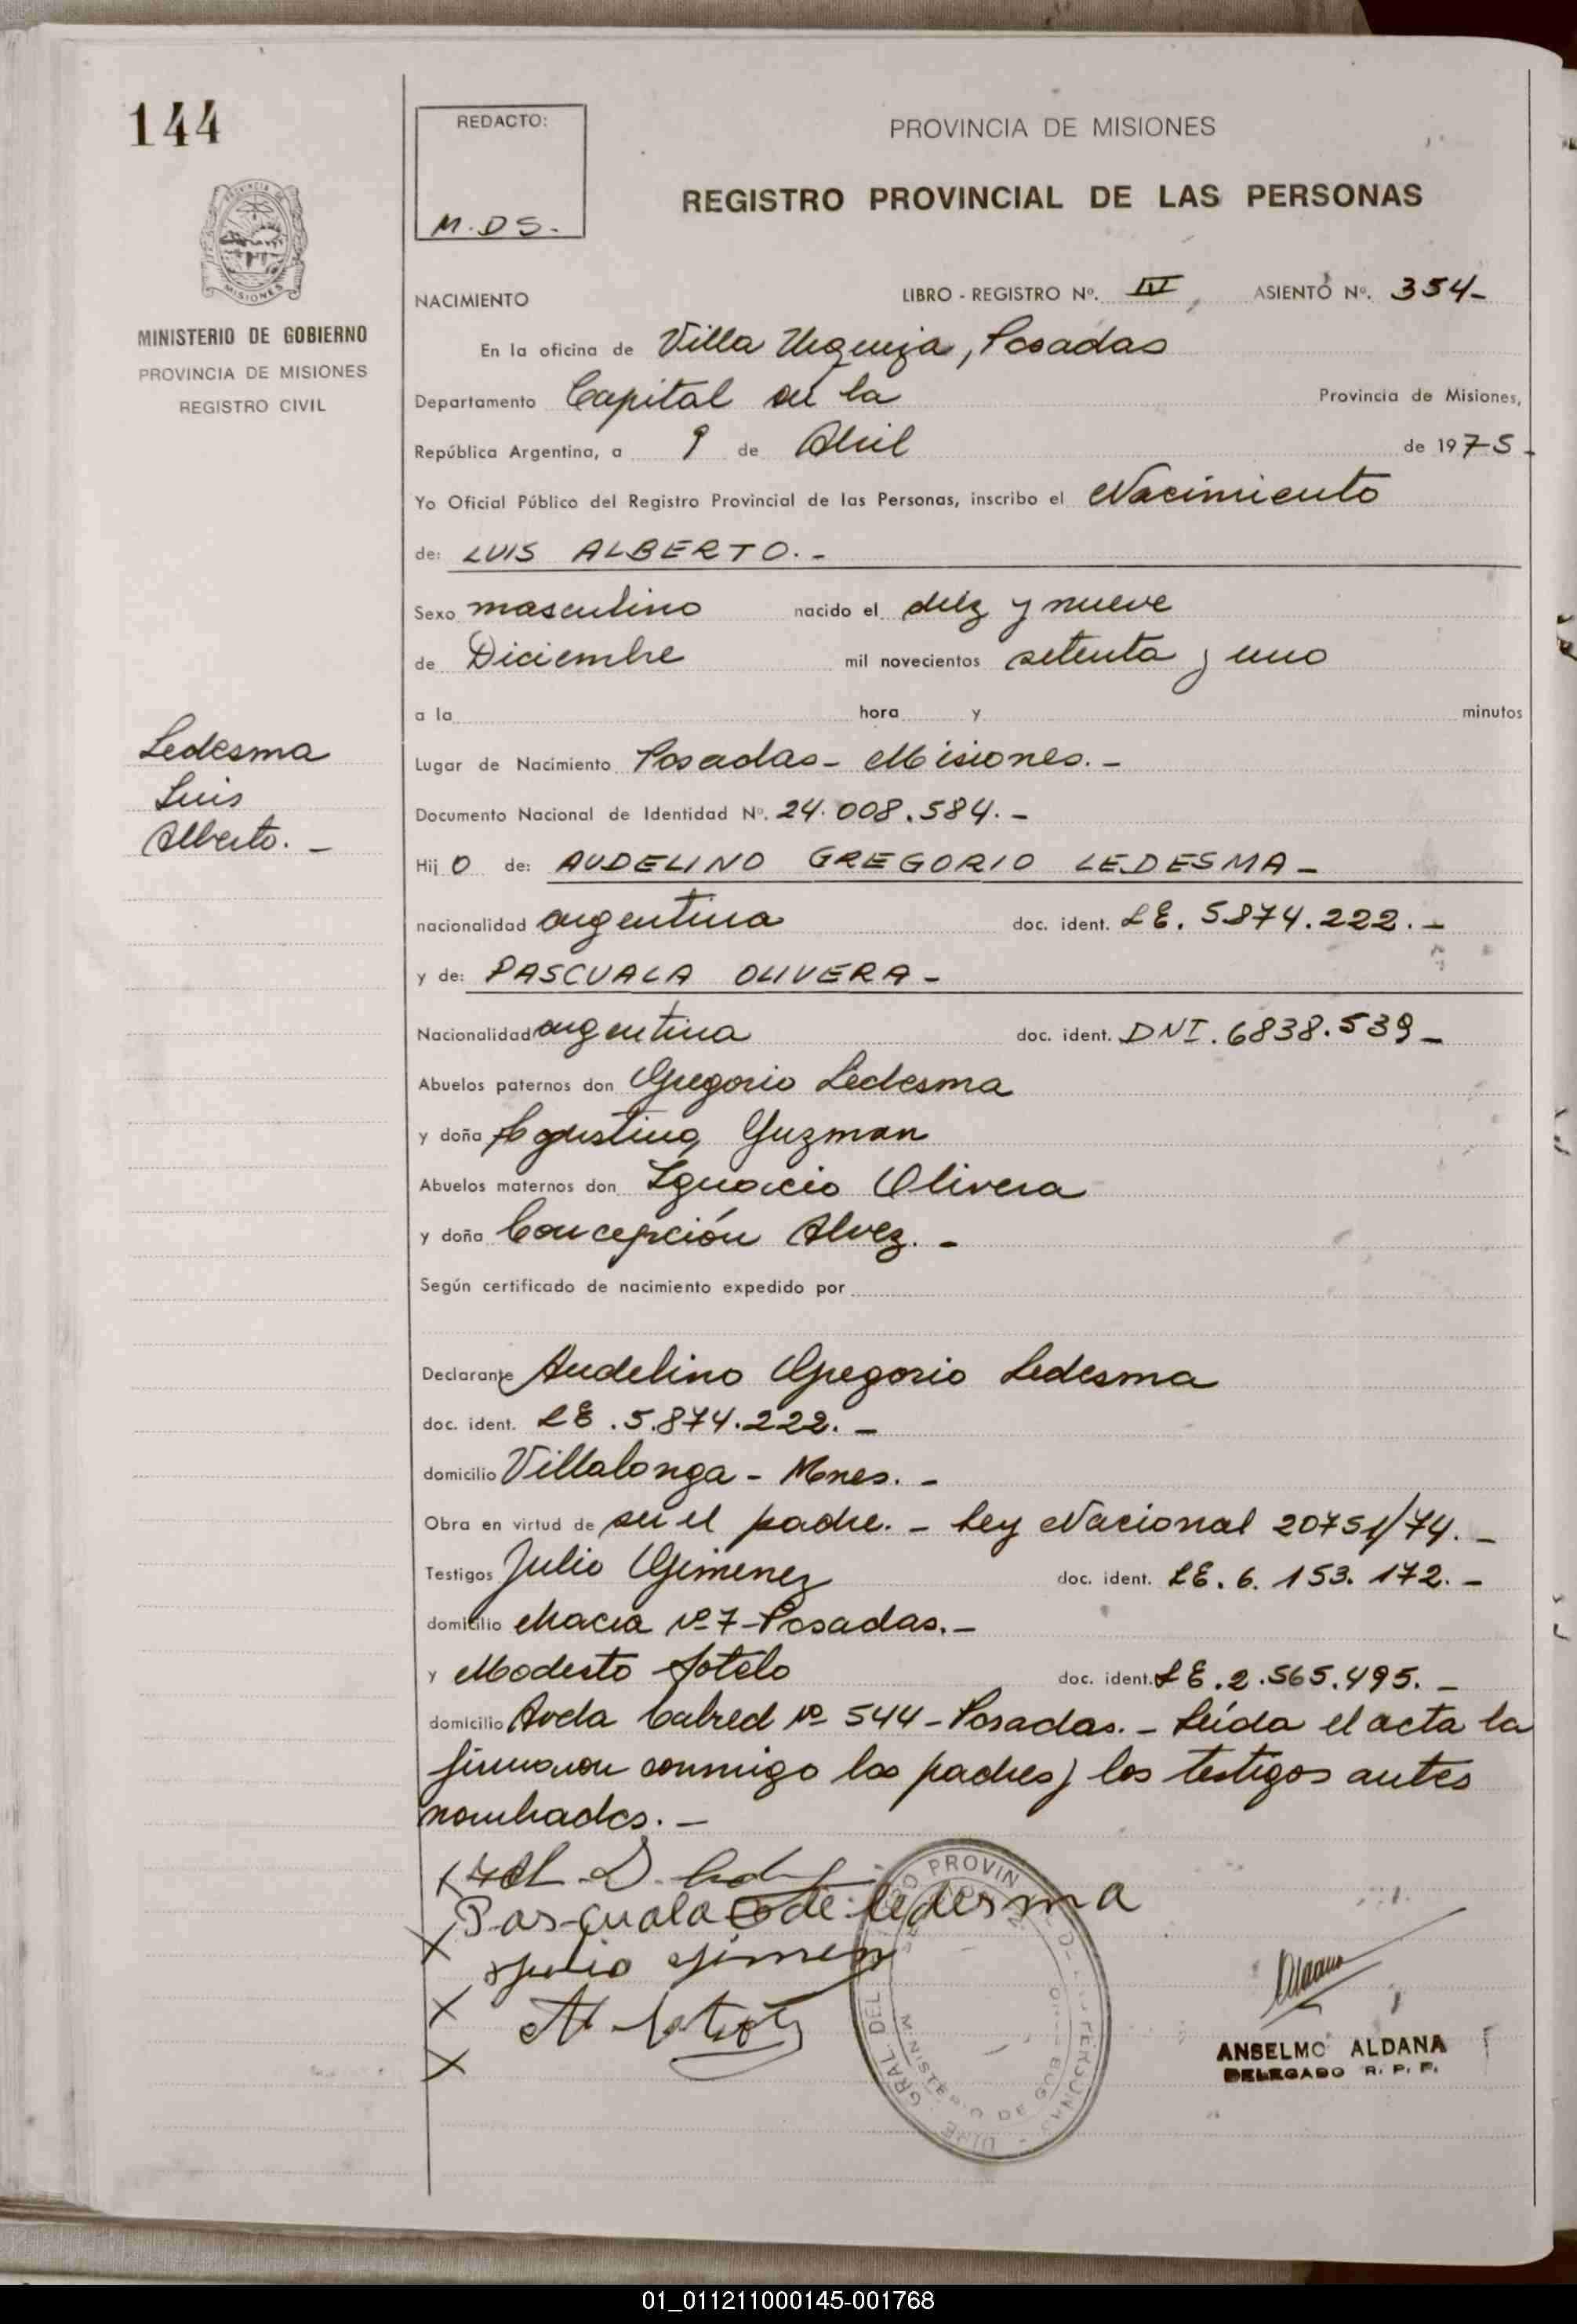 144
REDACTO:
M.DS.
PROVINCIA DE MISIONES
REGISTRO PROVINCIAL DE LAS PERSONAS
MISIONES
MINISTERIO DE GOBIERNO
PROVINCIA DE MISIONES
REGISTRO CIVIL
NACIMIENTO LIBRO - REGISTRO Nº. IV ASIENTO Nº. 354-
En la oficina de Villa Urquiza, Posadas
Departamento Capital en la Provincia de Misiones,
República Argentina, a 9 de Abril de 1975-
Yo Oficial Público del Registro Provincial de las Personas, inscribo el Nacimiento
de: LUIS ALBERTO.-
Sexo masculino nacido el diez y nueve
de Diciembre mil novecientos setenta y uno
a la hora y minutos
Ledesma
Luis
Alberto. -
Lugar de Nacimiento Posadas- Misiones.-
Documento Nacional de Identidad Nº. 24.008.584.-
Hij o de: AUDELINO GREGORIO LEDESMA-
nacionalidad argentina doc. ident. LE. 5874.222.-
y de: PASCUALA OLIVERA-
Nacionalidad argentina doc. ident. DNI. 6838.539-
Abuelos paternos don Gregorio Ledesma
y doña Agustina Guzman
Abuelos maternos don Ignacio Olivera
y doña Concepción Alvez.-
Según certificado de nacimiento expedido por
Declarante Audelino Gregorio Ledesma
doc. ident. LE.5.874.222.-
domicilio Villalonga - Mnes.-
Obra en virtud de ser el padre.- Ley Nacional 20751/74.-
Testigos Julio Gimenez doc. ident. LE.6.153.172.-
domicilio Macia Nº7-Posadas.-
y Modesto Sotelo doc. ident. LE.2.565.495.-
domicilio Avda Cabred Nº 544-Posadas.- Leída el acta la
firmaron conmigo los padres y los testigos antes
nombrados.-
Pascuala O de ledesma
Julio Jimenez
ANSELMO ALDANA
DELEGADO R. P. P.
01_011211000145-001768